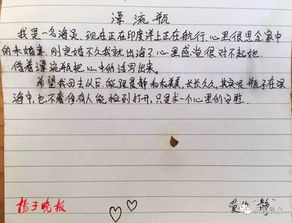 漂流瓶
我是一名海员,现在正在印度洋上正在航行,心里很思念家中
的未婚妻,刚定婚不久我就出海了心里感觉很对不起她,
借着漂流瓶把心中的话写出来。
希望我回去从后能跟静和和美美,长长久久,其实说瓶子在深
海中,也不奢侈有人能捡到打开,只是求一个心里的安慰。
扬子晚报
爱你“静”